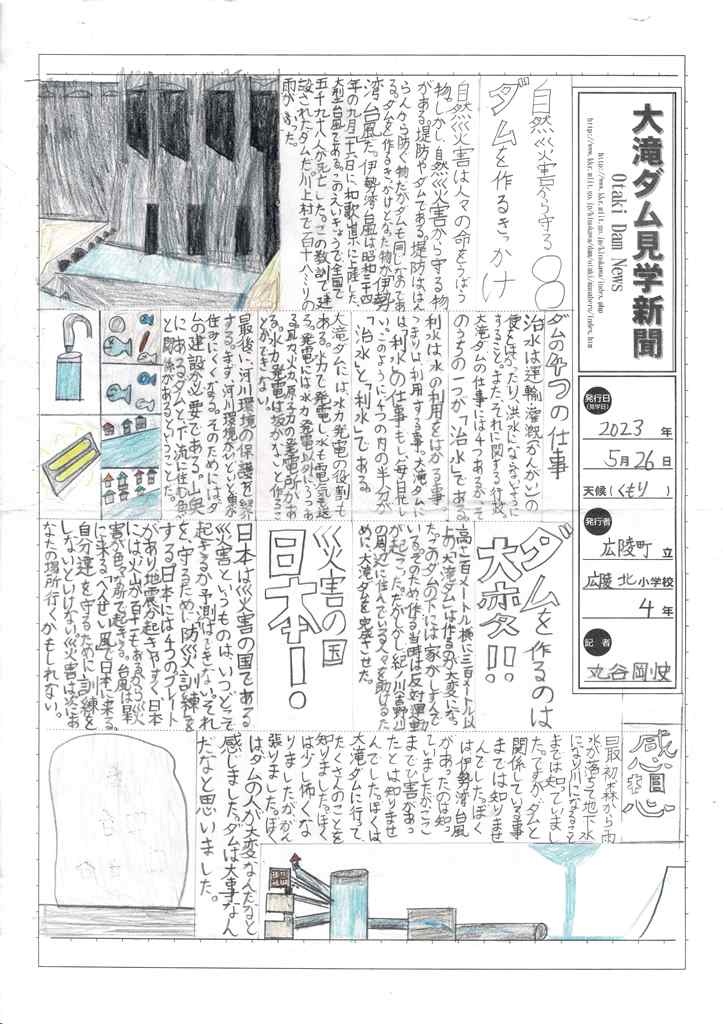 大滝ダム見学新聞
Otaki Dam News
発行日
(見学日)
2023年
5月26日
天候(くもり)
発行者
広陵町 立
広陵北 小学校
4年
記者
丸谷 剛史
自然災害から守る
ダムを作るきっかけ
自然災害は人々の命をうばう
物。しかし、自然災害から守る物
がある。堤防やダムである。堤防ははん
らんから防ぐ物だが、ダムも同じなのであ
る。ダムを作るきっかけとなった物が伊勢
湾台風だ。伊勢湾台風は昭和三十四
年の九月二十六日に和歌山県に上陸した、
大型台風である。このえいきょうで全国で
五千九十八人が死亡した。この教訓で建
設されたダムだ。川上村で一百十八ミリの
雨がふった。
ダムの4つの仕事
治水は運輸、灌漑(かんがい)の
便をはかったり、洪水にならないように
すること。また、それに関する行政。
大滝ダムの仕事には4つあるが、そ
のうちの一つが「治水」である。
利水は水の利用をはかる事。
つまり利用する事。大滝ダムに
は「利水」の仕事もし、毎日忙し
い。このように4つの内の半分が
「治水」と「利水」である。
大滝ダムには水力発電の役割も
ある。水力で発電し、水も電気も送
る。発電には水力発電以外に
風力、火力、原子力の発電所があ
る。水力発電は坂がないと作るこ
とができない。
最後に河川環境の保護を紹介
する。まず河川環境がないと魚が
住みにくくなる。そのためには、ダ
ムの建設が必要である。山奥
にあるダムと下流に住む魚
と関係があるということだ。
ダムを作るのは
大変!!
高さ百メートル横に三百メートル以
上の「大滝ダム」は作るのが大変だ。な
ぜなら、このダムの下には家がしずんで
いる。そのため、作る当時は反対運動
が起こった。だが、しかし、紀ノ川吉野川
の周辺に住んでいる人々を助けるた
めに大滝ダムを完成させた。
災害の国
日本!。
日本は災害の国である。
災害というものは、いつ、どこで
起きるか予測はできない。それ
を守るために「防災訓練」を
する。日本には4つのプレート
があり、地震が起きやすく、日本
には火山が百十一もあるから火災
害が色々な所で起きる。台風は最
に来る。へんせい風で日本に来る。
自分達を守るために訓練を
しないといけない。災害は次にあ
なたの場所へ行くかもしれない。
感想
最初、森から雨
水が落ちて地下水
になり、川になること
までは知っていまし
た。ですが、ダムと
関係している事
までは知りませ
んでした。ぼく
は伊勢湾台風
があったのは知っ
ていましたが、ここ
まで害があっ
たとは知りませ
んでした。ぼくは
大滝ダムに行って、
たくさんのことを
知りました。ぼく
は少し怖くな
りましたが、がん
張りました。ぼく
はダムの人が大変なんだなと
感じました。ダムは大事なん
だなと思いました。